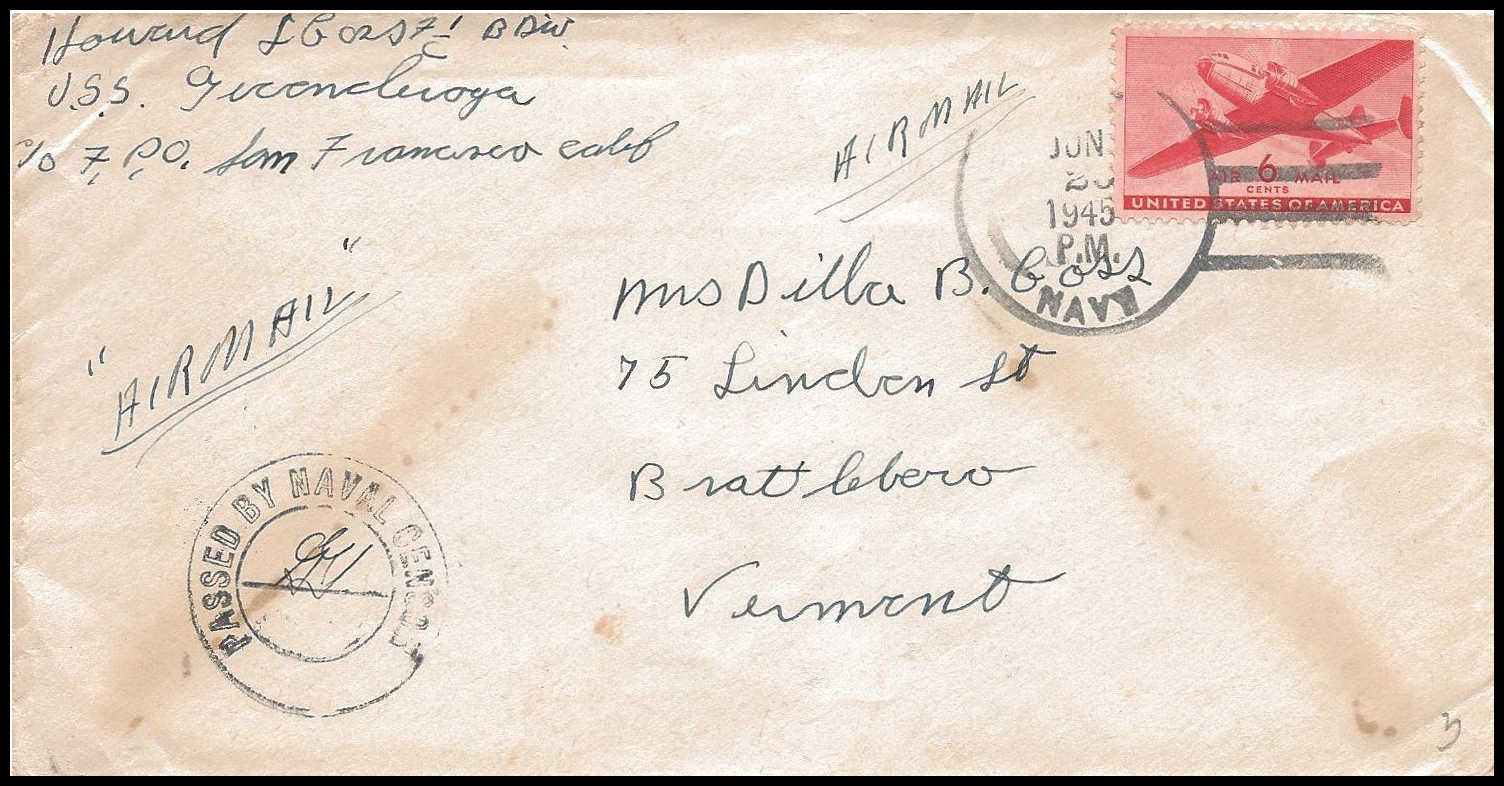 Howard L Coss F 1/C B Div.
U.S.S. Ticonderoga
c/o F.P.O. San Francisco Calif
AIRMAIL
JUN
1945
P.M.
NAVY
AIR 6 MAIL
CENTS
UNITED STATES OF AMERICA
"AIRMAIL"
Mrs Dilla B. Coss
75 Linden St
Brattleboro
Vermont
PASSED BY NAVAL CENSOR